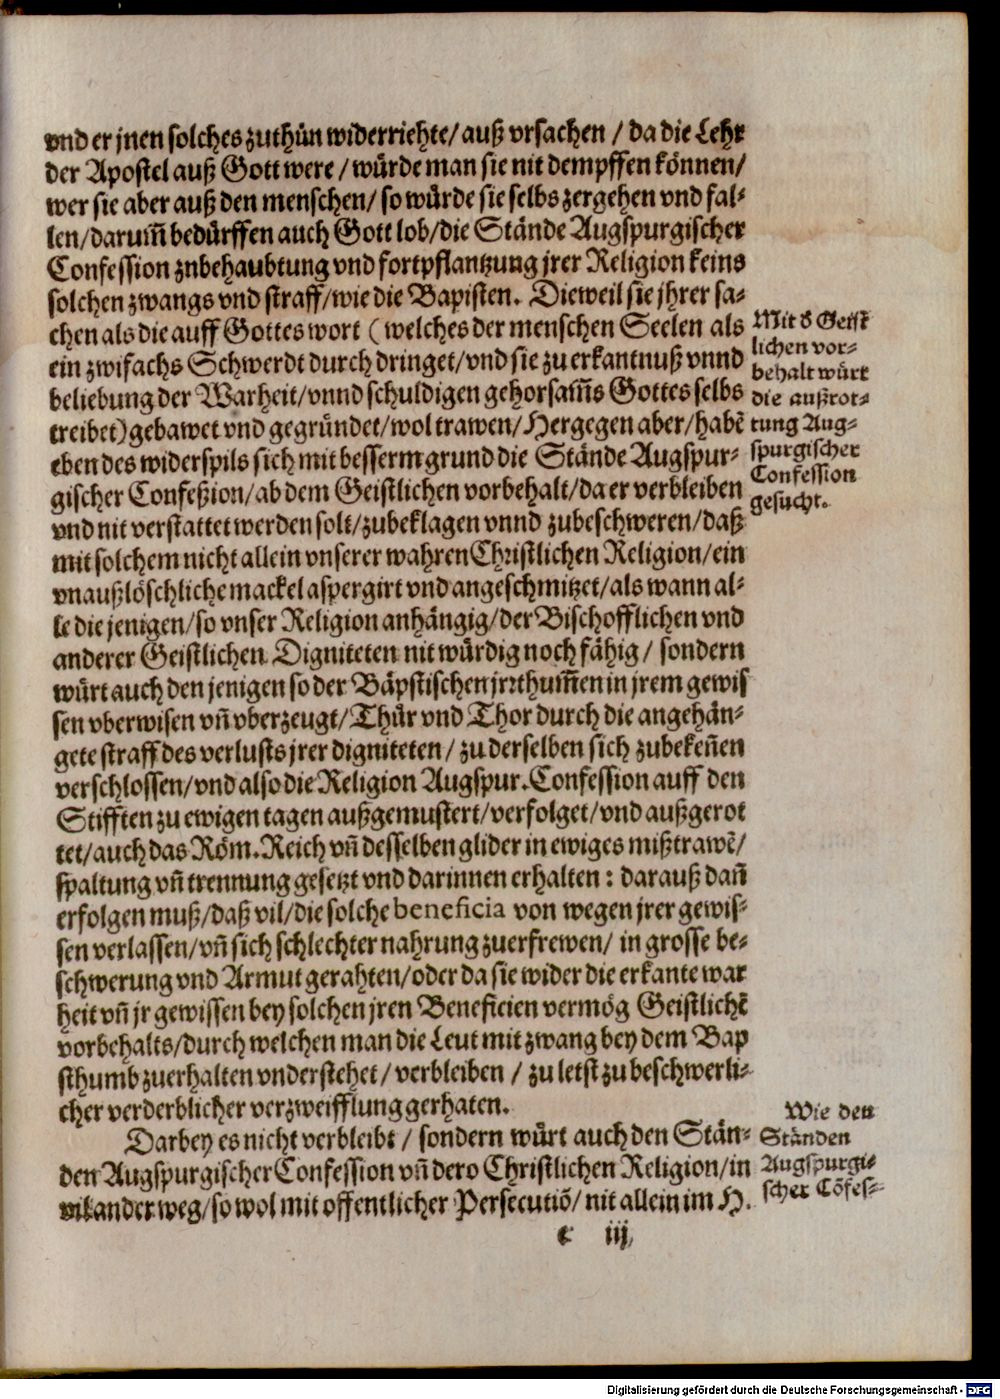 vnd er jnen solches zuthůn widerriehte/ auß vrsachen / da die Lehr
der Apostel auß Gott were / würde man sie nit dempffen können/
wer sie aber auß den menschen/ so würde sie selbs zergehen vnd fal-
len/ darum̃ bedürffen auch Gott lob/ die Stände Augspurgischer
Confession znbehaubtung vnd fortpflantzung jrer Religion keins
solchen zwangs vnd straff/ wie die Bapisten. Dieweil sie jhrer sa-
chen als die auff Gottes wort ( welches der menschen Seelen als
ein zwifachs Schwerdt durch dringet/ vnd sie zu erkantnuß vnnd
beliebung der Warheit/ vnnd schuldigen gehorsam̃s Gottes selbs
treibet) gebawet vnd gegründet/ wol trawen/ Hergegen aber/ habẽ
eben des widerspils sich mit besserm grund die Stände Augspur-
gischer Confeßion/ ab dem Geistlichen vorbehalt/ da er verbleiben
vnd nit verstattet werden solt/ zubeklagen vnnd zubeschweren/ daß
mit solchem nicht allein vnserer wahren Christlichen Religion/ ein
vnaußlöschliche mackel aspergirt vnd angeschmitzet/ als wann al-
le die jenigen/ so vnser Religion anhängig/ der Bischofflichen vnd
anderer Geistlichen Digniteten nit würdig noch fähig / sondern
würt auch den jenigen so der Bäpstischen jrrthum̃en in jrem gewis
sen vberwisen vñ vberzeugt/ Thür vnd Thor durch die angehän-
gete straff des verlusts jrer digniteten / zu derselben sich zubekeñen
verschlossen/ vnd also die Religion Augspur. Confession auff den
Stifften zu ewigen tagen außgemustert/ verfolget/ vnd außgerot
tet/ auch das Röm. Reich vñ desselben glider in ewiges mißtrawẽ/
spaltung vñ trennung gesetzt vnd darinnen erhalten : darauß dañ
erfolgen muß/ daß vil/ die solche beneficia von wegen jrer gewis-
sen verlassen/ vñ sich schlechter nahrung zuerfrewen/ in grosse be-
schwerung vnd Armut gerahten/ oder da sie wider die erkante war
heit vñ jr gewissen bey solchen jren Beneficien vermög Geistlichẽ
vorbehalts/ durch welchen man die Leut mit zwang bey dem Bap
sthumb zuerhalten vnderstehet/ verbleiben / zu letst zu beschwerli-
cher verderblicher verzweifflung gerhaten.
Darbey es nicht verbleibt / sondern würt auch den Stän-
den Augspurgischer Confession vñ dero Christlichen Religion/ in
vil ander weg/ so wol mit offentlicher Persecutiõ/ nit allein im H.
c iij
Mit d Geist
lichen vor-
behalt würt
die außrot-
tung Aug-
spurgischer
Confession
gesucht.
Wie den
Ständen
Augspurgi-
scher Cõfes-
Digitalisierung gefördert durch die Deutsche Forschungsgemeinschaft - DFG